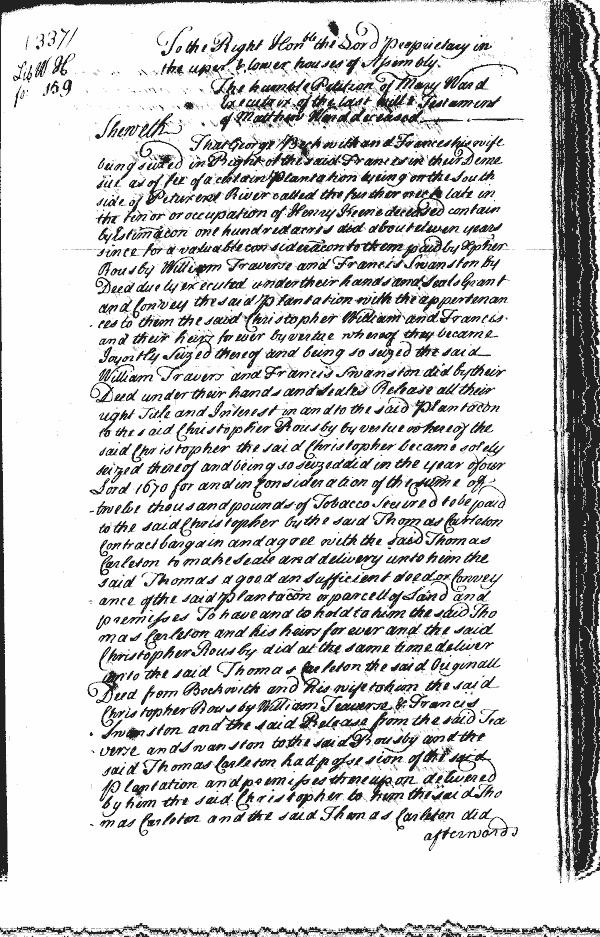 (337)
Lib W H
fo: 159
To the Right Honble the Lord Proprietary in
the uper & lower houses of Assembly.
The humble Petition of Mary Ward
Executrix of the last will & Testament
of Matthew Ward deceased
Sheweth
That George Beckwith and Frances his wife
being seized in Right of the said Frances in their Deme
sne as of fee of a certain Plantation lying on the South
side of Petuxend River called the further neck late in
the tenor or occupation of Henry deceased contain
by Estimacon one hundred acres did about eleven years
since for a valuable consideracon to them paid by Xpher
Rousby William Traverse and Francis Swanston by
Deed duely executed under their hands and seals Grant
and Convey the said Plantation with the appertenan
ces to them the said Christopher William and Francis
and their heirs forever by vertue whereof they became
Joyntly Seized thereof and being so seized the said
William Travers and Francis Swanston did by their
Deed under their hands and seales Release all their
right Title and Interest in and to the said Plantacon
to the said Christopher Rousby by vertue whereof the
said Christopher the said Christopher became solely
seized thereof and being so seized did in the year of our
Lord 1670 for and in Consideration of the sume of
twelve thousand pounds of Tobacco Secured to be paid
to the said Christopher by the said Thomas Carleton
Contract bargain and agree with the said Thomas
Carleton to make seale and delivery unto him the
said Thomas a good an sufficient deed or Convey
ance of the said Plantacon or parcell of Land and
premisses To have and to hold to him the said Tho
mas Carleton and his heirs for ever and the said
Christopher Rousby did at the same time deliver
unto the said Thomas Carleton the said Originall
Deed from Beckwith and his wife to him the said
Christopher Rousby William Traverse & Francis
Swanston and the said Release from the said Tra
verse and Swanston to the said Rousby and the
said Thomas Carleton had possesion of the said
Plantation and premisses thereupon delivered
by him the said Christopher to him the said Tho
mas Carleton and the said Thomas Carleton did
afterwards